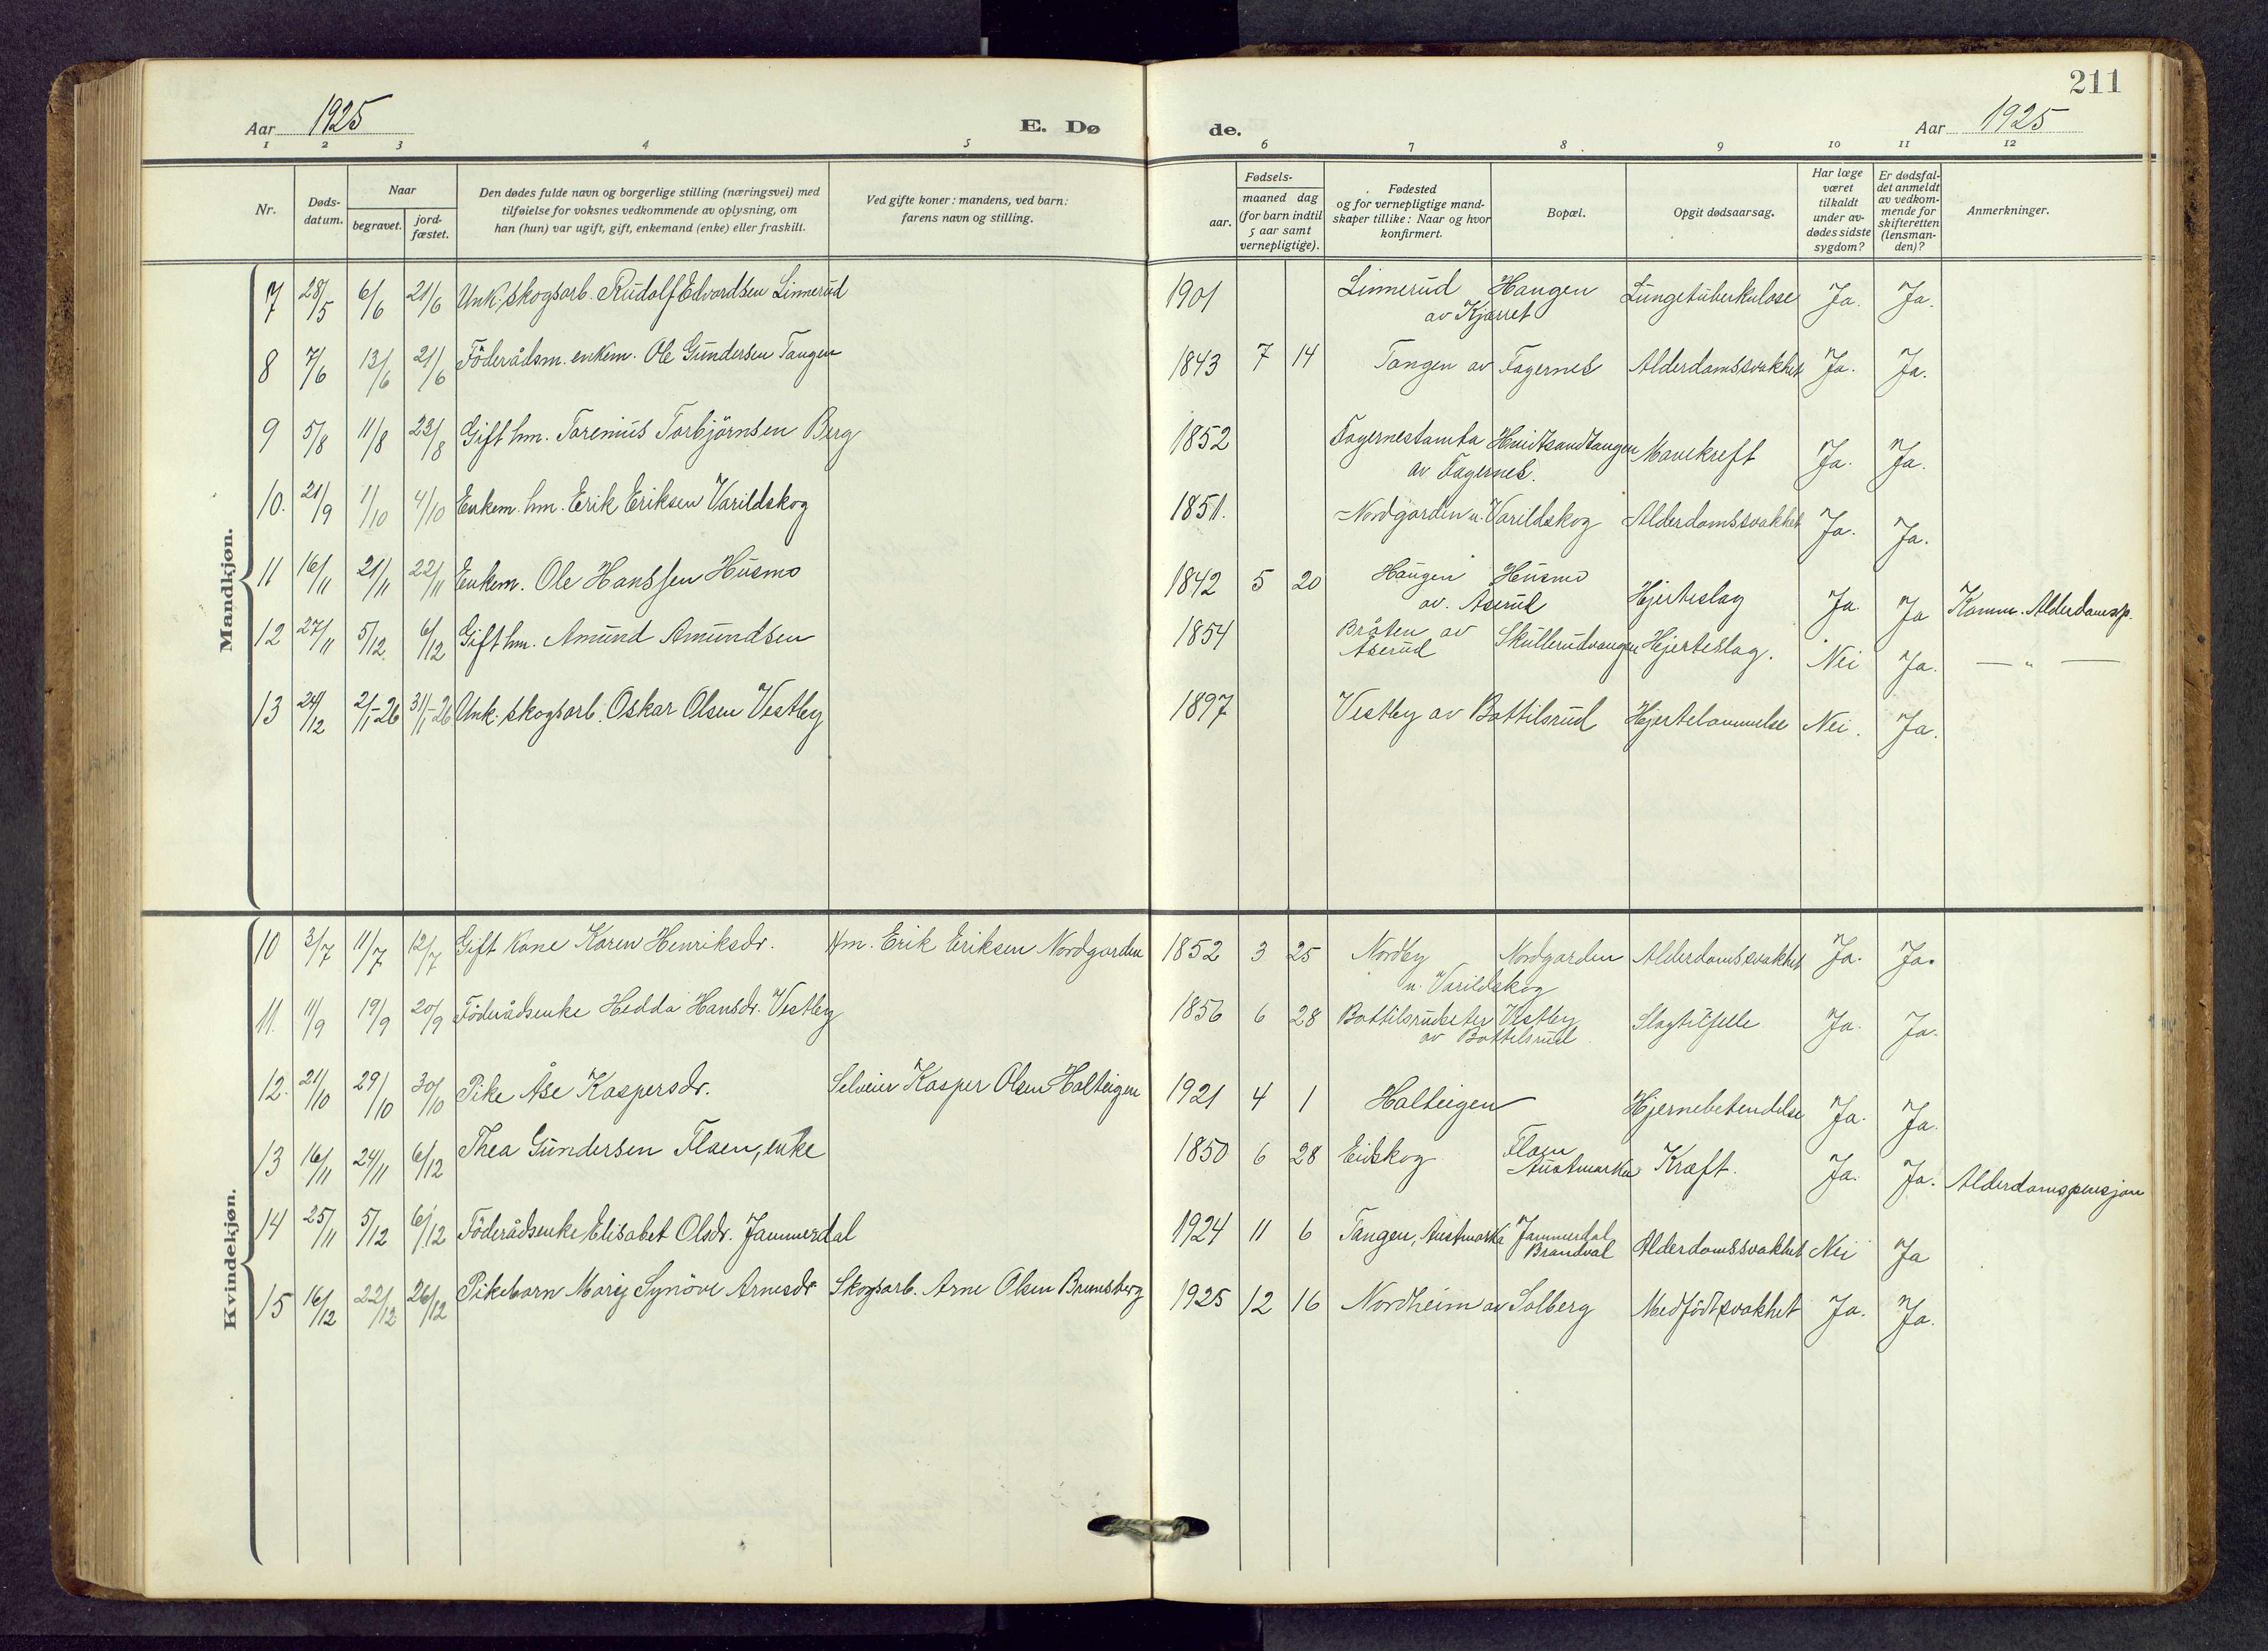 211
Aar 1925
E. Dø
de.
Aar 1925
1 2 3 4 5 6 7 8 9 10 11 12
Nr.
Døds-
datum.
Naar
begravet.
jord-
fæstet.
Den dødes fulde navn og borgerlige stilling (næringsvei) med
tilføielse for voksnes vedkommende av oplysning, om
han (hun) var ugift, gift, enkemand (enke) eller fraskilt.
Ved gifte koner: mandens, ved barn:
farens navn og stilling.
Fødsels-
aar.
maaned dag
(for barn indtil
5 aar samt
vernepligtige).
Fødested
og for vernepligtige mand-
skaper tillike: Naar og hvor
konfirmert.
Bopæl.
Opgit dødsaarsag.
Har læge
været
tilkaldt
under av-
dødes sidste
sygdom?
Er dødsfal-
det anmeldt
av vedkom-
mende for
skifteretten
(lensman-
den)?
Anmerkninger.
Mandkjøn.
7 28/5 6/6 21/6 Unk. skogsarb. Rudolf Edvardsen Linnerud 1901 Linnerud Haugen Lungetuberkulose Ja. Ja.
av Kjærret
8 7/6 13/6 21/6 Föderådsm. enkem. Ole Gundersen Tangen 1843 7 14 Tangen av Fagernes Alderdomssvakhet Ja. Ja.
9 5/8 11/8 23/8 Gift hm. Torenius Torbjörnsen Berg 1852 Fagernestomta Hvidtsandtangen Mavekreft Ja. Ja.
av Fagernes.
10. 21/9 1/10 4/10 Enkem. hm. Erik Eriksen Varildskog 1851. Nordgarden u. Varildskog Alderdomssvakhet Ja. Ja.
11 16/11 21/11 22/11 Enkem. Ole Hanssen Husmo 1842 5 20 Haugen Husmo Hjerteslag Ja. Ja Komm. Alderdomsp.
av. Åserud
12 27/11 5/12. 6/12 Gift hm. Amund Amundsen 1854 Bråten av Skullerudvangen Hjerteslag. Nei Ja. — " —
Åserud
13 24/12 2/1-26 31/1-26 Unk. skogsarb. Oskar Olsen Vestby 1897 Vestby av Bottilsrud Hjertelammelse Nei. Ja.
Kvindekjøn.
10 3/7 11/7 12/7 Gift kone Karen Henriksdr. Hm. Erik Eriksen Nordgarden 1852 3 25 Nordby Nordgarden Alderdomssvakhet Ja. Ja.
u. Varildskog
11. 11/9 19/9 20/9 Föderådsenke Hedda Hansdr. Vestby 1856 6 28 Bottilsrudseter Vestby Slagtilfelle Ja. Ja.
av Bottilsrud
12. 21/10 29/10 30/10 Pike Åse Kaspersdr. Selveier Kasper Olsen Holteigen 1921 4 1 Holteigen Hjernebetendelse Ja. Ja.
13 16/11 24/11 6/12 Thea Gundersen Flaen, enke 1850 6 28 Eidskog Flaen Kraft. Ja. Ja. Alderdomspensjon
Austmarka
14 25/11 5/12 6/12 Föderådsenke Elisabet Olsdr. Jammerdal 1924 11 6 Tangen, Austmarka Jammerdal Alderdomssvakhet Nei Ja
Brandval
15 16/12 22/12 26/12 Pikebarn Marij Synöve Arnesdr Skogsarb. Arne Olsen Brunsberg 1925 12 16 Nordheim av Solberg Medfödt svakhet Ja. Ja.